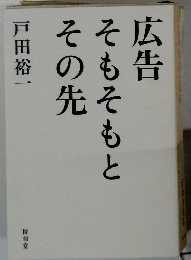 広告
そもそもと
その先
戸田裕一
博報堂